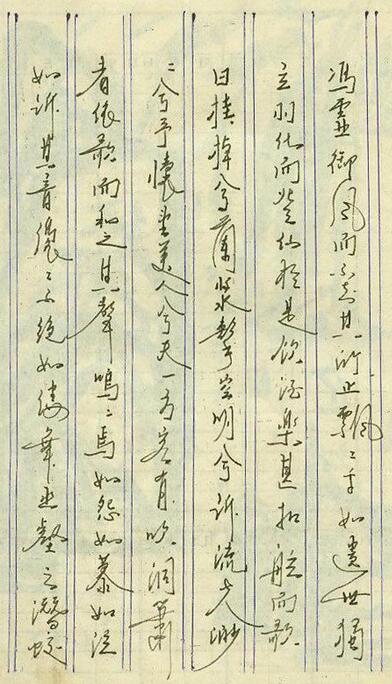 馮虛御風而不知其所止飄〻乎如遺世獨
立羽化而登仙於是飲酒樂甚扣舷而歌
曰桂棹兮蘭槳擊空明兮訴流光渺
〻兮予懷望美人兮天一方客有吹洞簫
者依歌而和之其聲嗚〻焉如怨如慕如泣
如訴其音嫋〻不絕如縷舞幽壑之潛蛟